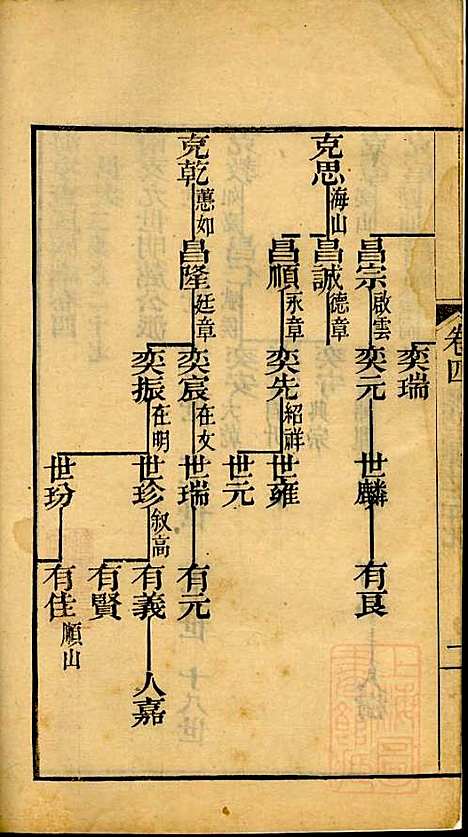 卷四
二
奕瑞
昌宗 啟雲
奕元
世麟
有良
克思 海山
昌誠 德章
昌順 永章
奕先 紹祥
世雍
世元
克乾 蕙如
昌隆 廷章
奕宸 在文
世瑞
有元
奕振 在明
世珍 叙高
有義
人嘉
有賢
世玢
有佳 順山